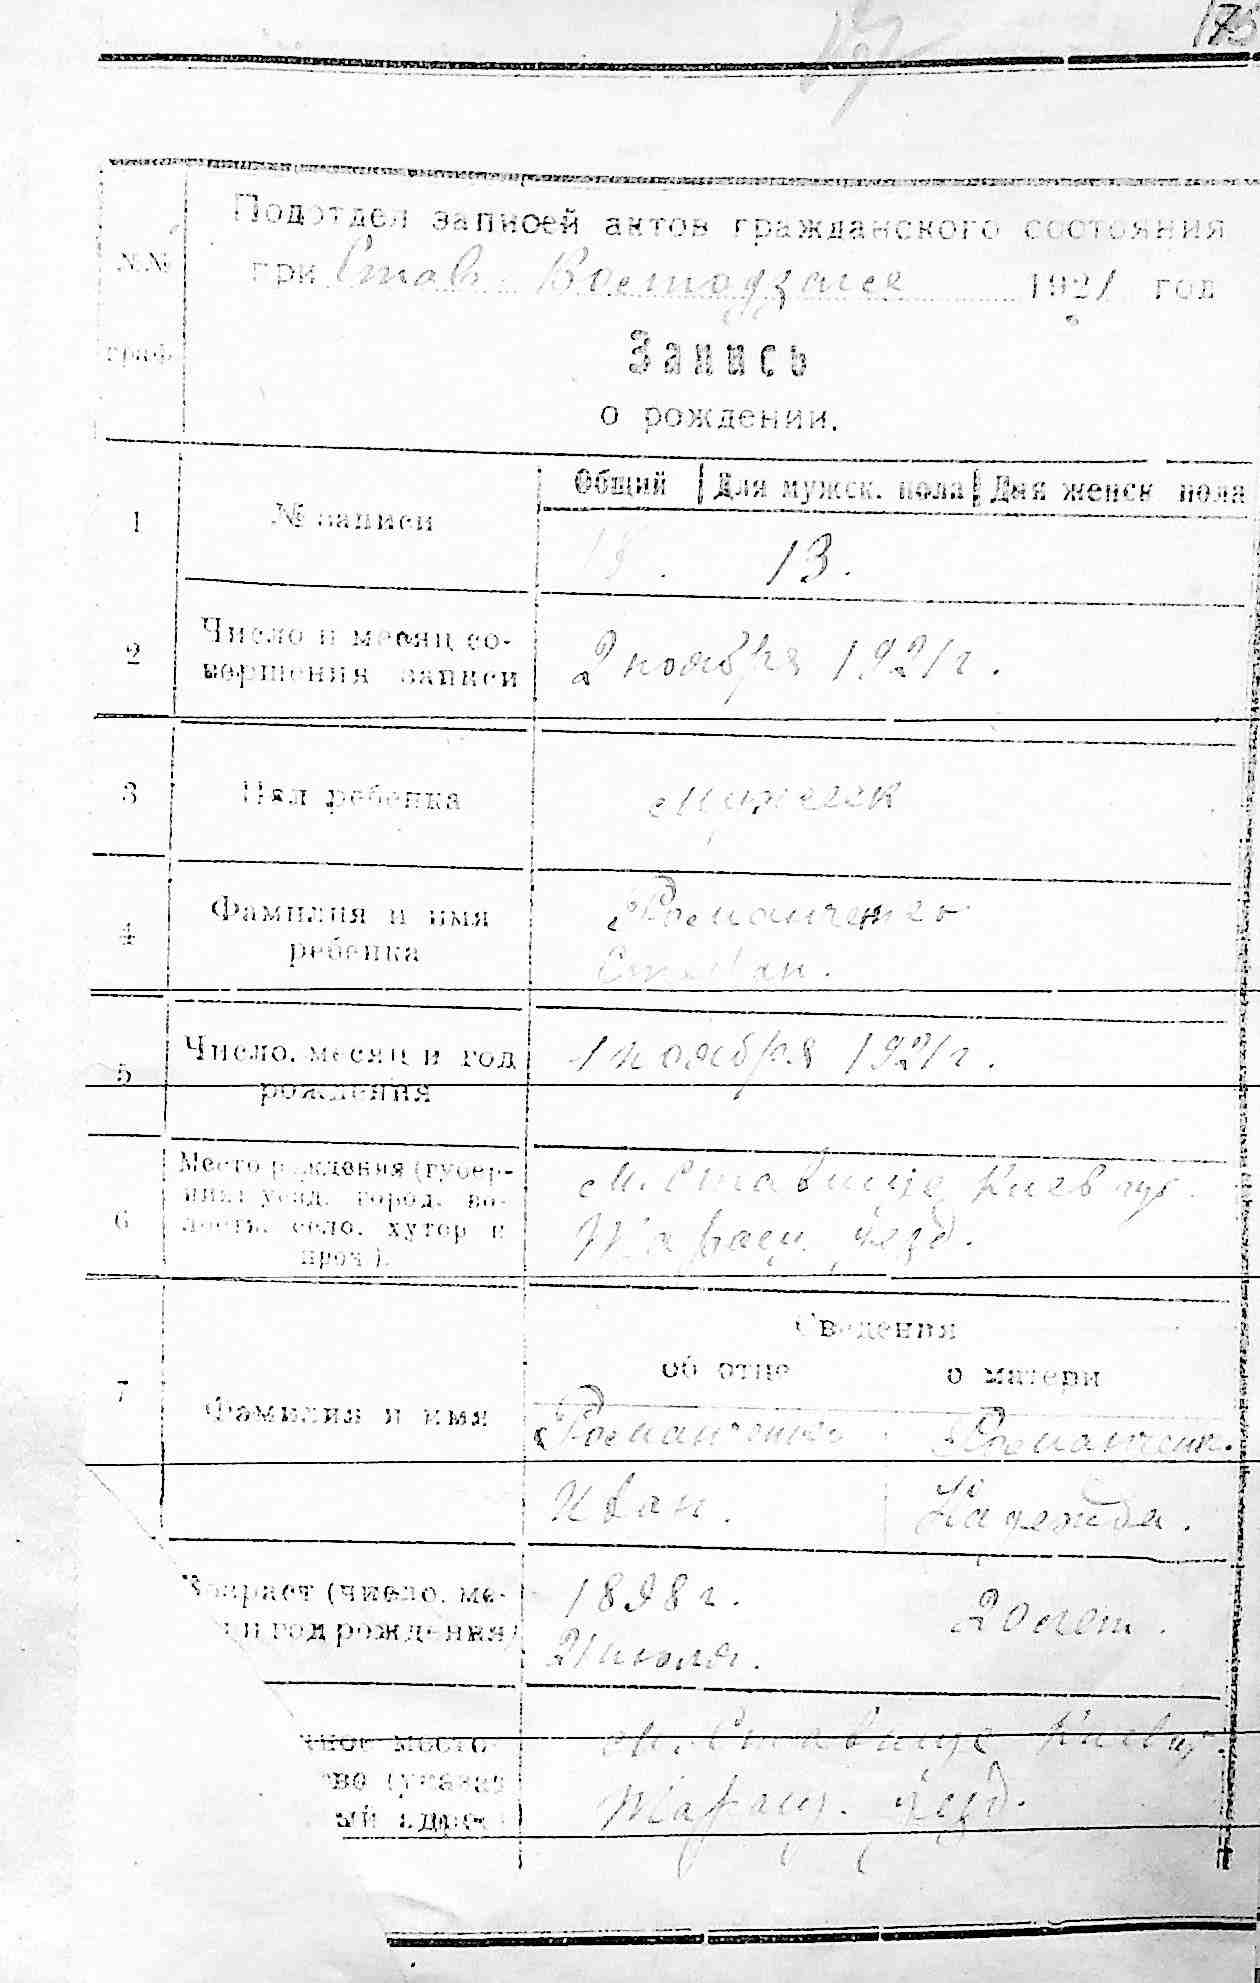 175
Подотдел записей актов гражданского состояния
при Став 1921 год
№№
граф.
Запись
о рождении.
Общий Для мужск. пола Для женск пола
1 № записи
13. 13.
2 Число и месяц со-
вершения записи
2 ноября 1921 г.
3 Пол ребенка
Мужеск
4 Фамилия и имя
ребенка
Романченко
Степан.
5 Число, месяц и год
рождения
1 ноября 1921 г.
6 Место рождения (губер-
ния уезд. город. во-
лость. село. хутор и
проч.).
м. Ставище Киев губ.
Таращ. уезд.
Сведения
об отце о матери
7 Фамилия и имя
Романченко Романченк.
Иван. Надежда.
Возраст (число, ме-
и год рождения)
1898 г. 20 лет.
21 июля.
ное место-
во (указат
ый адрес)
м. Ставище Киев губ.
Таращ. уезд.